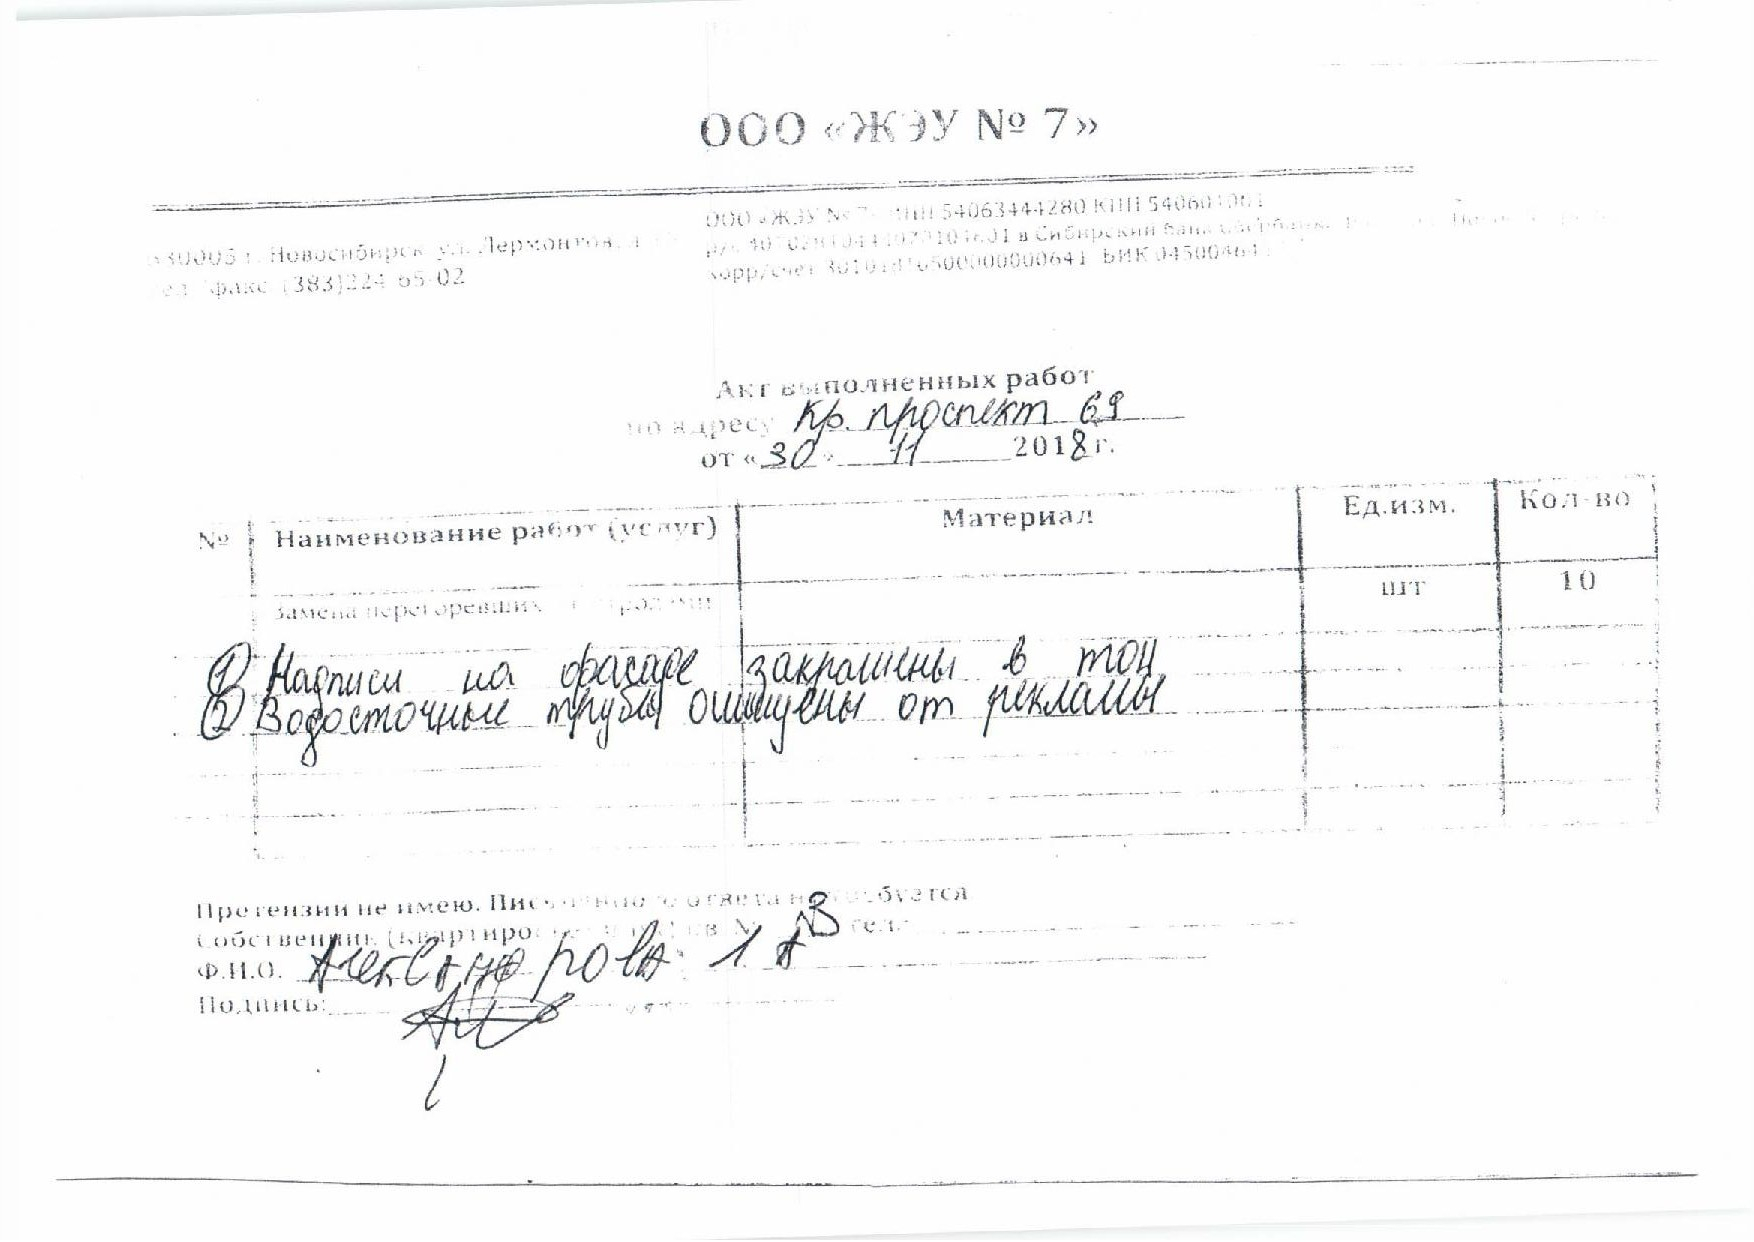 ООО «ЖЭУ № 7»
ООО «ЖЭУ № 7» ИНН 54063444280 КПП 540601001
630005 г. Новосибирск ул. Лермонтова,
в Сибирский банк
тел./факс (383)224-65-02
корр/счет БИК
Акт выполненных работ
по адресу Кр. проспект 69
от «30» 11 2018 г.
№ Наименование работ (услуг) Материал Ед.изм. Кол-во
Замена перегоревших шт 10
1) Надписи на фасаде закрашены в тон
2) Водосточные трубы очищены от рекламы
Претензии не имею. Письменного ответа не требуется
Собственник кв. № тел.
Ф.И.О. Александрова
Подпись: